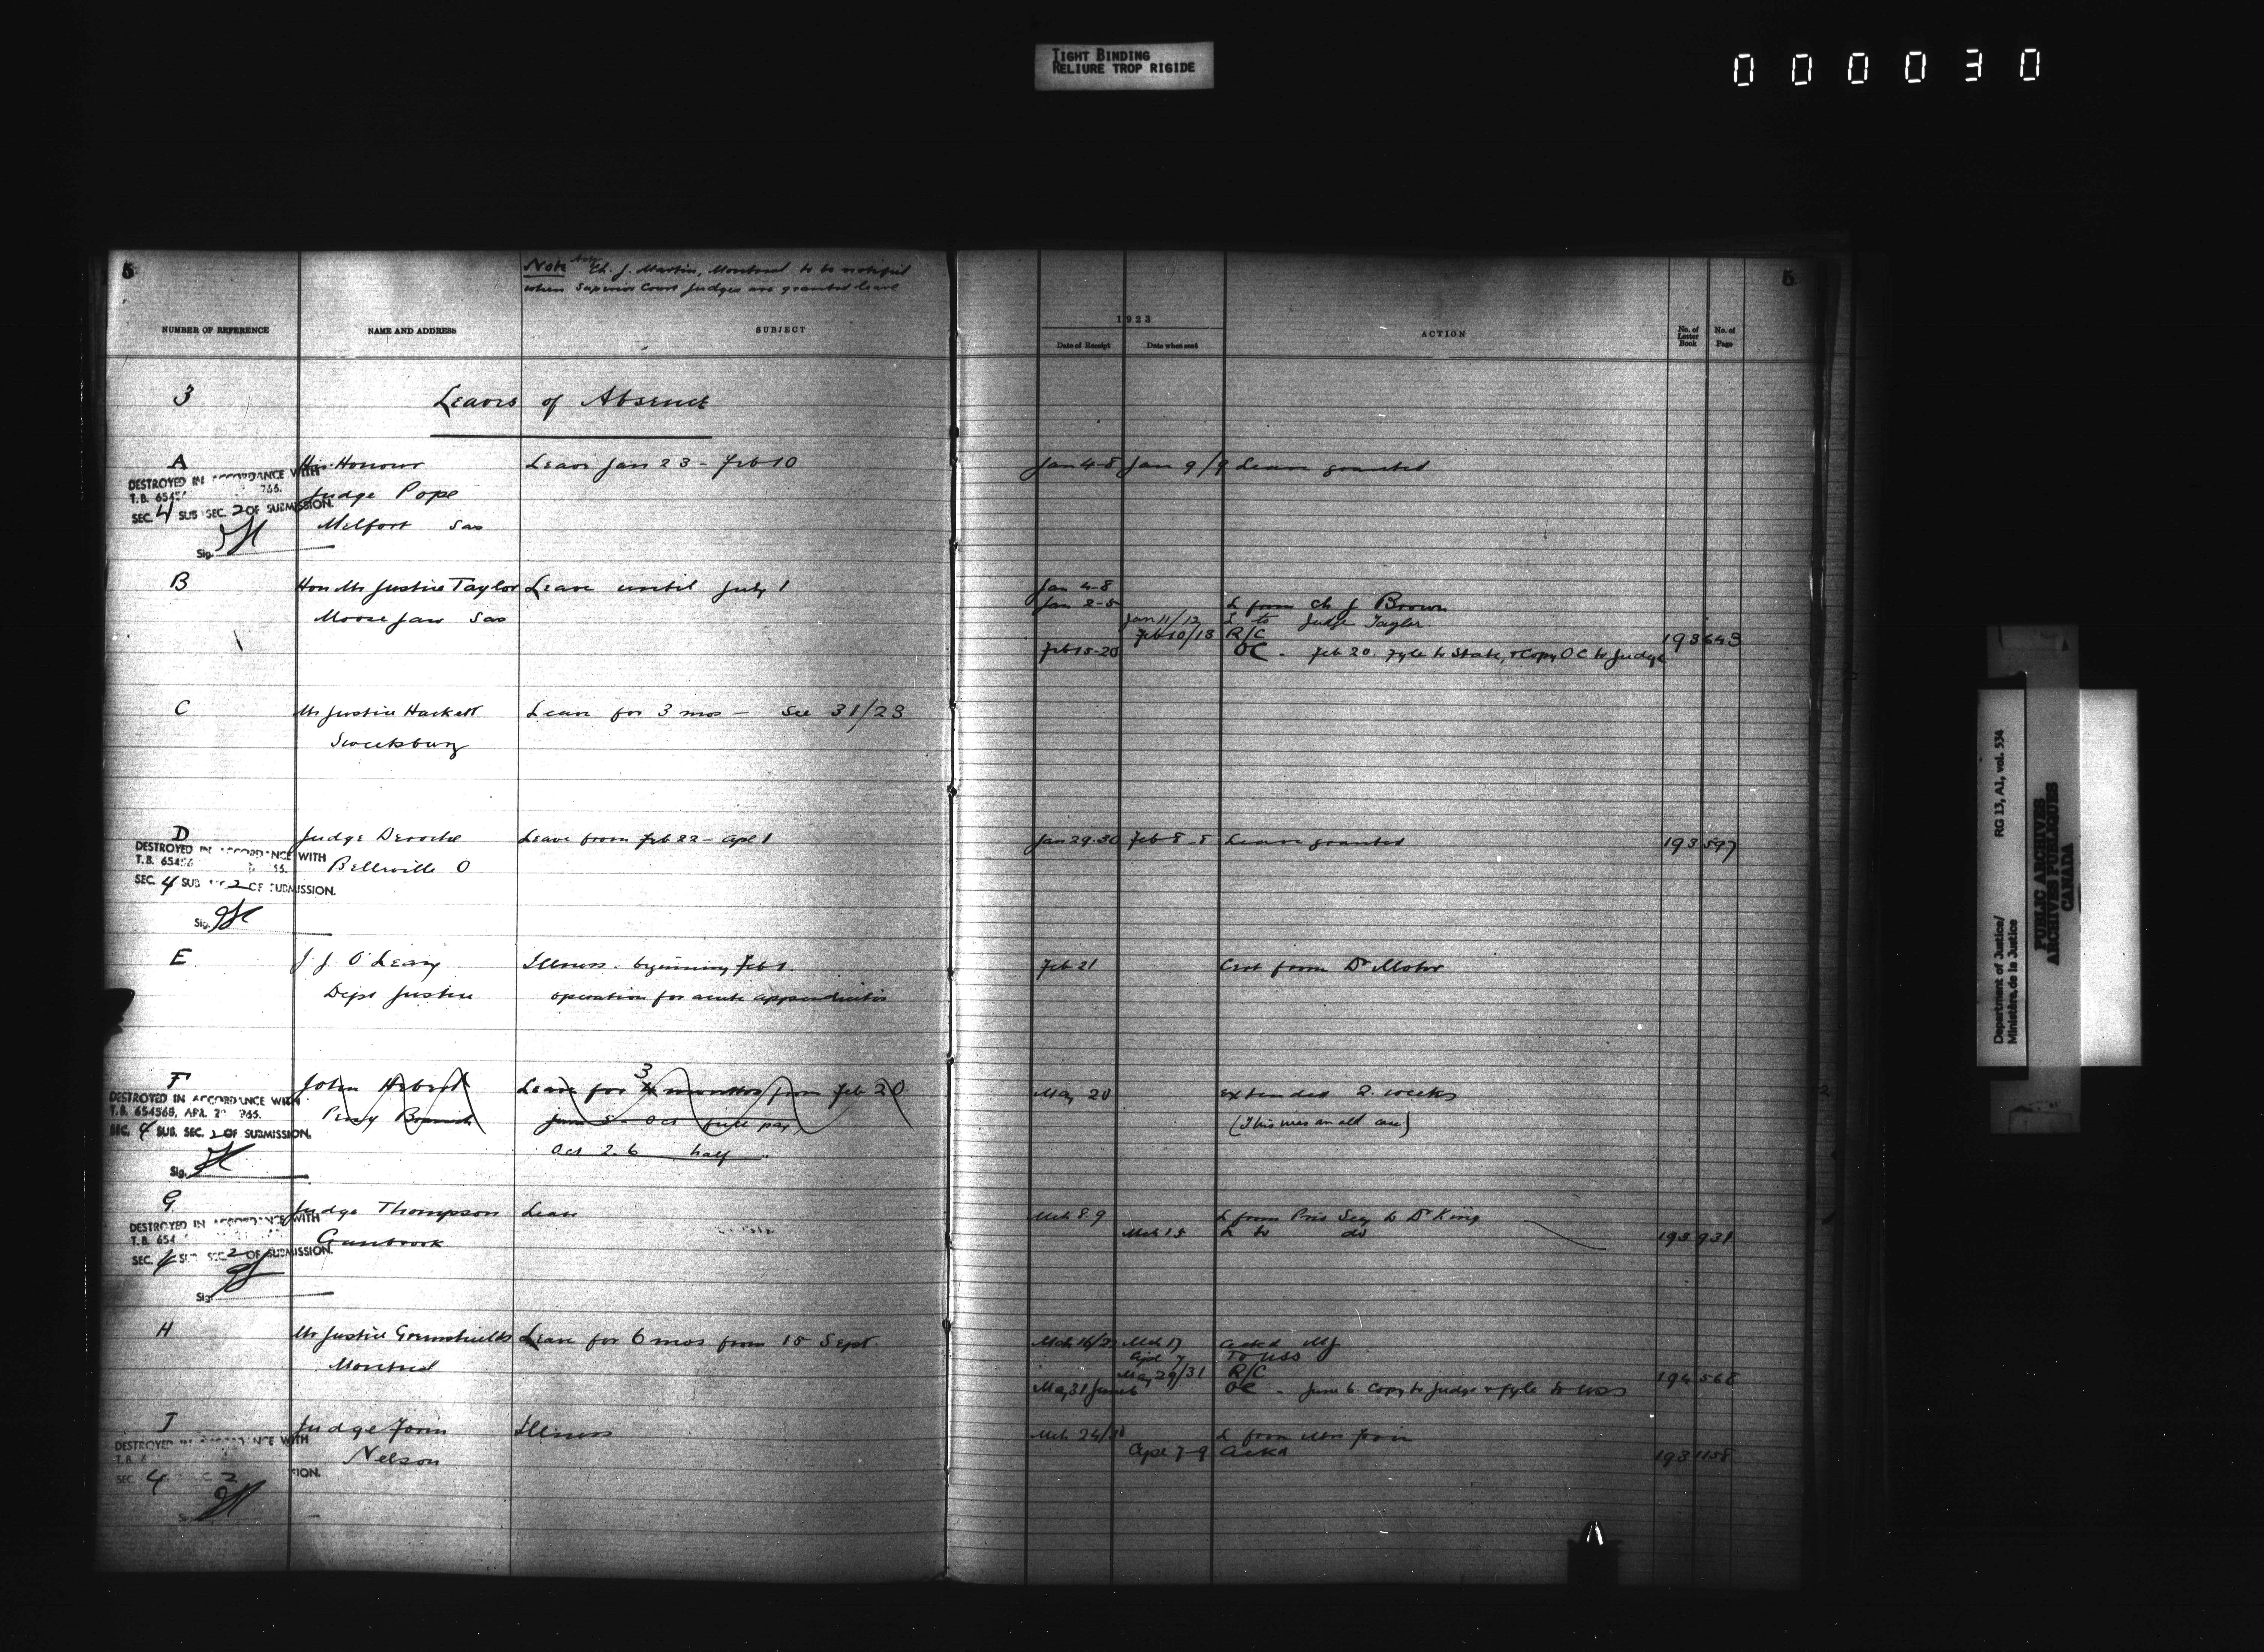 TIGHT BINDING
RELIURE TROP RIGIDE
000030
5
Note Ch. J. Martin, Montreal to be notified
when Superior Court Judges are granted leave
NUMBER OF REFERENCE NAME AND ADDRESS SUBJECT
3 Leaves of Absence
A His Honour Leave Jan 23 - Feb 10
DESTROYED IN ACCORDANCE WITH
T.B. 6545
Judge Pope
SEC. 4 SUB SEC. 2 OF SUBMISSION.
Melfort Sas
Sig.
B Hon Mr Justice Taylor Leave until July 1
Moose Jaw Sas
C Mr Justice Hackett Leave for 3 mos - See 31/23
D Judge Deroche Leave from Feb 22 - Apl 1
DESTROYED IN ACCORDANCE WITH
T.B. 65456
Belleville O
SEC. 4 SUB SEC. 2 OF SUBMISSION.
Sig.
E J. J. O'Leary Illness. beginning Feb 1.
Dept Justice operation for acute appendicitis
F John Hebert Leave for 3 months from Feb 20
DESTROYED IN ACCORDANCE WITH
T.B. 654568, APR. 2 1965.
Peny Branch June 5 - Oct full pay
SEC. 4 SUB. SEC. 2 OF SUBMISSION.
Oct 2. 6 half "
Sig.
G Judge Thompson Leave
DESTROYED IN ACCORDANCE WITH
T.B. 654
Cranbrook
SEC. 4 SUB SEC. 2 OF SUBMISSION.
Sig.
H Mr Justice Greenshields Leave for 6 mos from 15 Sept.
Montreal
I Judge Forin Illness
DESTROYED IN ACCORDANCE WITH
T.B. 6
Nelson
SEC. 4 2
5
1923
Date of Receipt Date when sent ACTION No. of Letter Book No. of Page
Jan 4-8 Jan 9/9 Leave granted
Jan 4-8
Jan 2-5 L from Ch J Brown
Jan 11/12 L to Judge Taylor.
Feb 10/13 R/C 193 643
Feb 15-20 OC - Feb 20. Fyle to State, & Copy OC to Judge
Jan 29-30 Feb 8-8 Leave granted 193 597
Feb 21 Cert from Dr Mohr
May 20 extended 2 weeks
(This was an old case)
Mch 8.9 L from Priv Secy to Dr King
Mch 15 L to do 193 931
Mch 17 Ackd MJ
Apl 7 To USS
May 29/31 R/C 194 568
May 31 June 6 OC - June 6. Copy to Judge & fyle to USS
Mch 24 L from Mrs Forin
Apl 7-9 Ackd 193 1158
Department of Justice/ RG 13, A1, vol. 534
Ministère de la Justice
PUBLIC ARCHIVES
ARCHIVES PUBLIQUES
CANADA